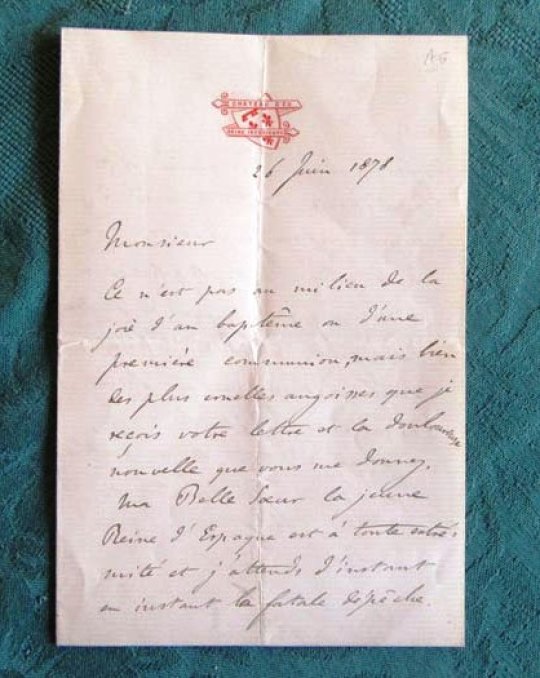 CHATEAU D'EU
SEINE INFERIEURE
26 Juin 1878
Monsieur
Ce n'est pas au milieu de la
joie d'un baptême ou d'une
première communion, mais bien
des plus cruelles angoisses que je
reçois votre lettre et la douloureuse
nouvelle que vous me donnez.
Ma Belle Sœur la jeune
Reine d'Espagne est à toute extré
mité et j'attends d'instant
en instant la fatale dépêche.